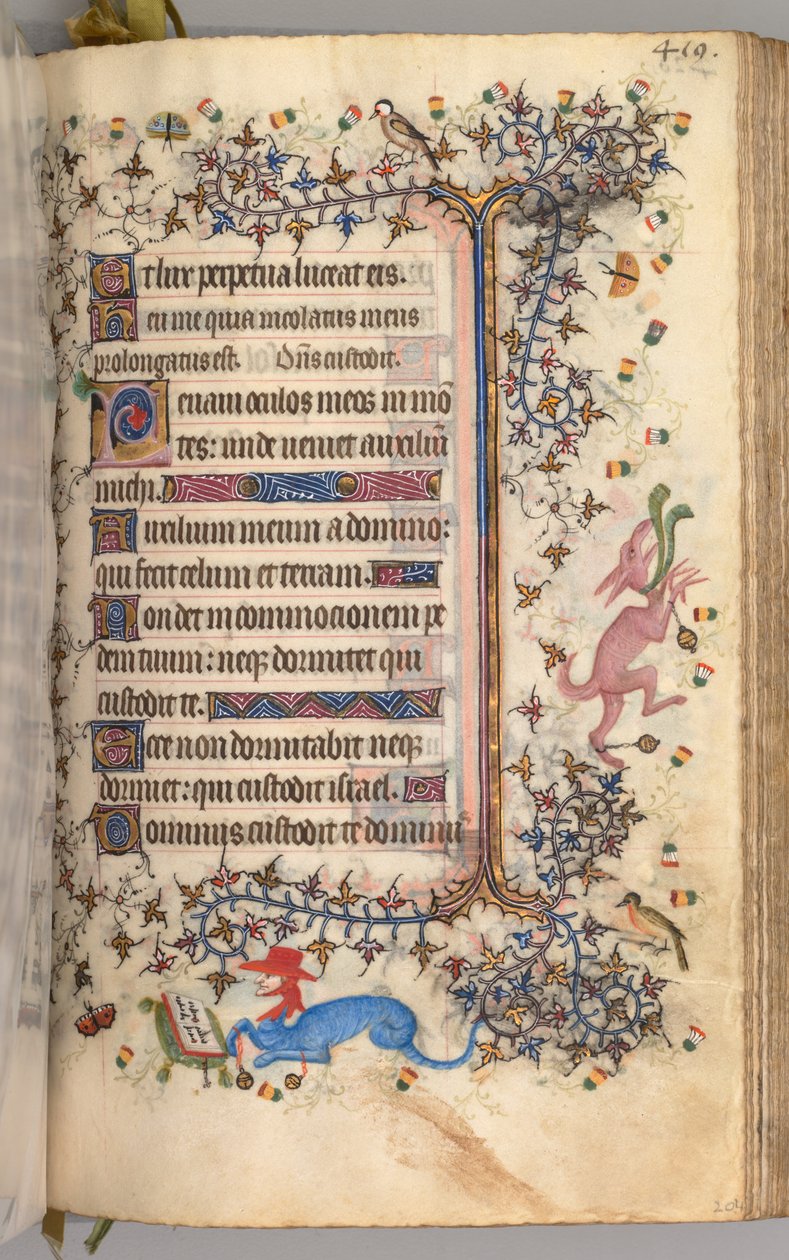 419.
Et lux perpetua luceat eis.
Heu me quia incolatus meus
prolongatus est. Dn̄s custodit.
Leuaui oculos meos in mō
tes: unde ueniet auxiliū
michi.
Auxilium meum a domino:
qui fecit celum et terram.
Non det in commocionem pe
dem tuum: neqꝫ dormitet qui
custodit te.
Ecce non dormitabit neqꝫ
dormiet: qui custodit israel.
Dominus custodit te dominus
204